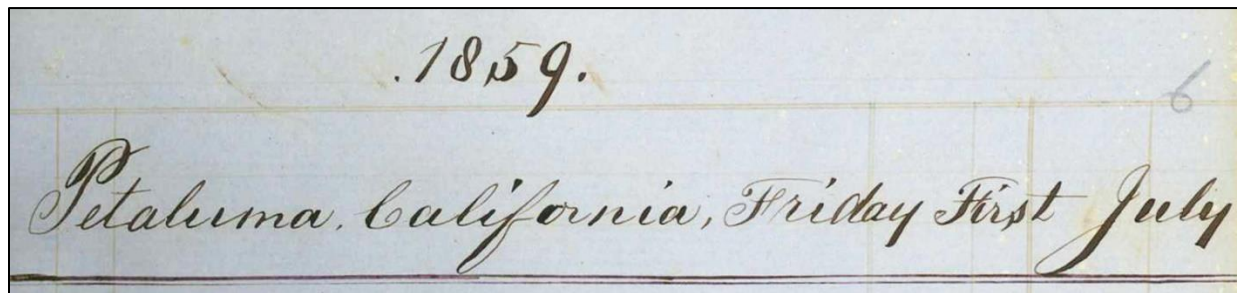 .1859.
6
Petaluma. California, Friday First July